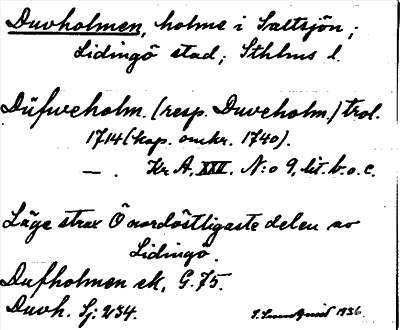 Duvholmen, holme i Saltsjön;
Lidingö stad; Sthlms l.
Düfweholm. (resp. Duveholm.) trol.
1714 (kop. omkr. 1740).
— . Kr. A. XXX. N:o 9, lit. b. o. c.
Läge strax Ö nordöstligaste delen av
Lidingö.
Dufholmen ek, G. 75.
Duvh. Sj: 234.
1936